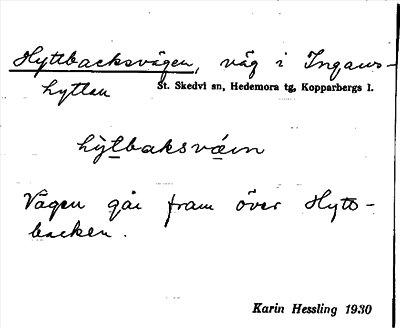 Hyttbacksvägen, väg i Ingaws-
hyttan
St. Skedvi sn, Hedemora tg, Kopparbergs l.
hỳtbaksvǽın
Vägen går fram över Hytt-
backen.
Karin Hessling 1930